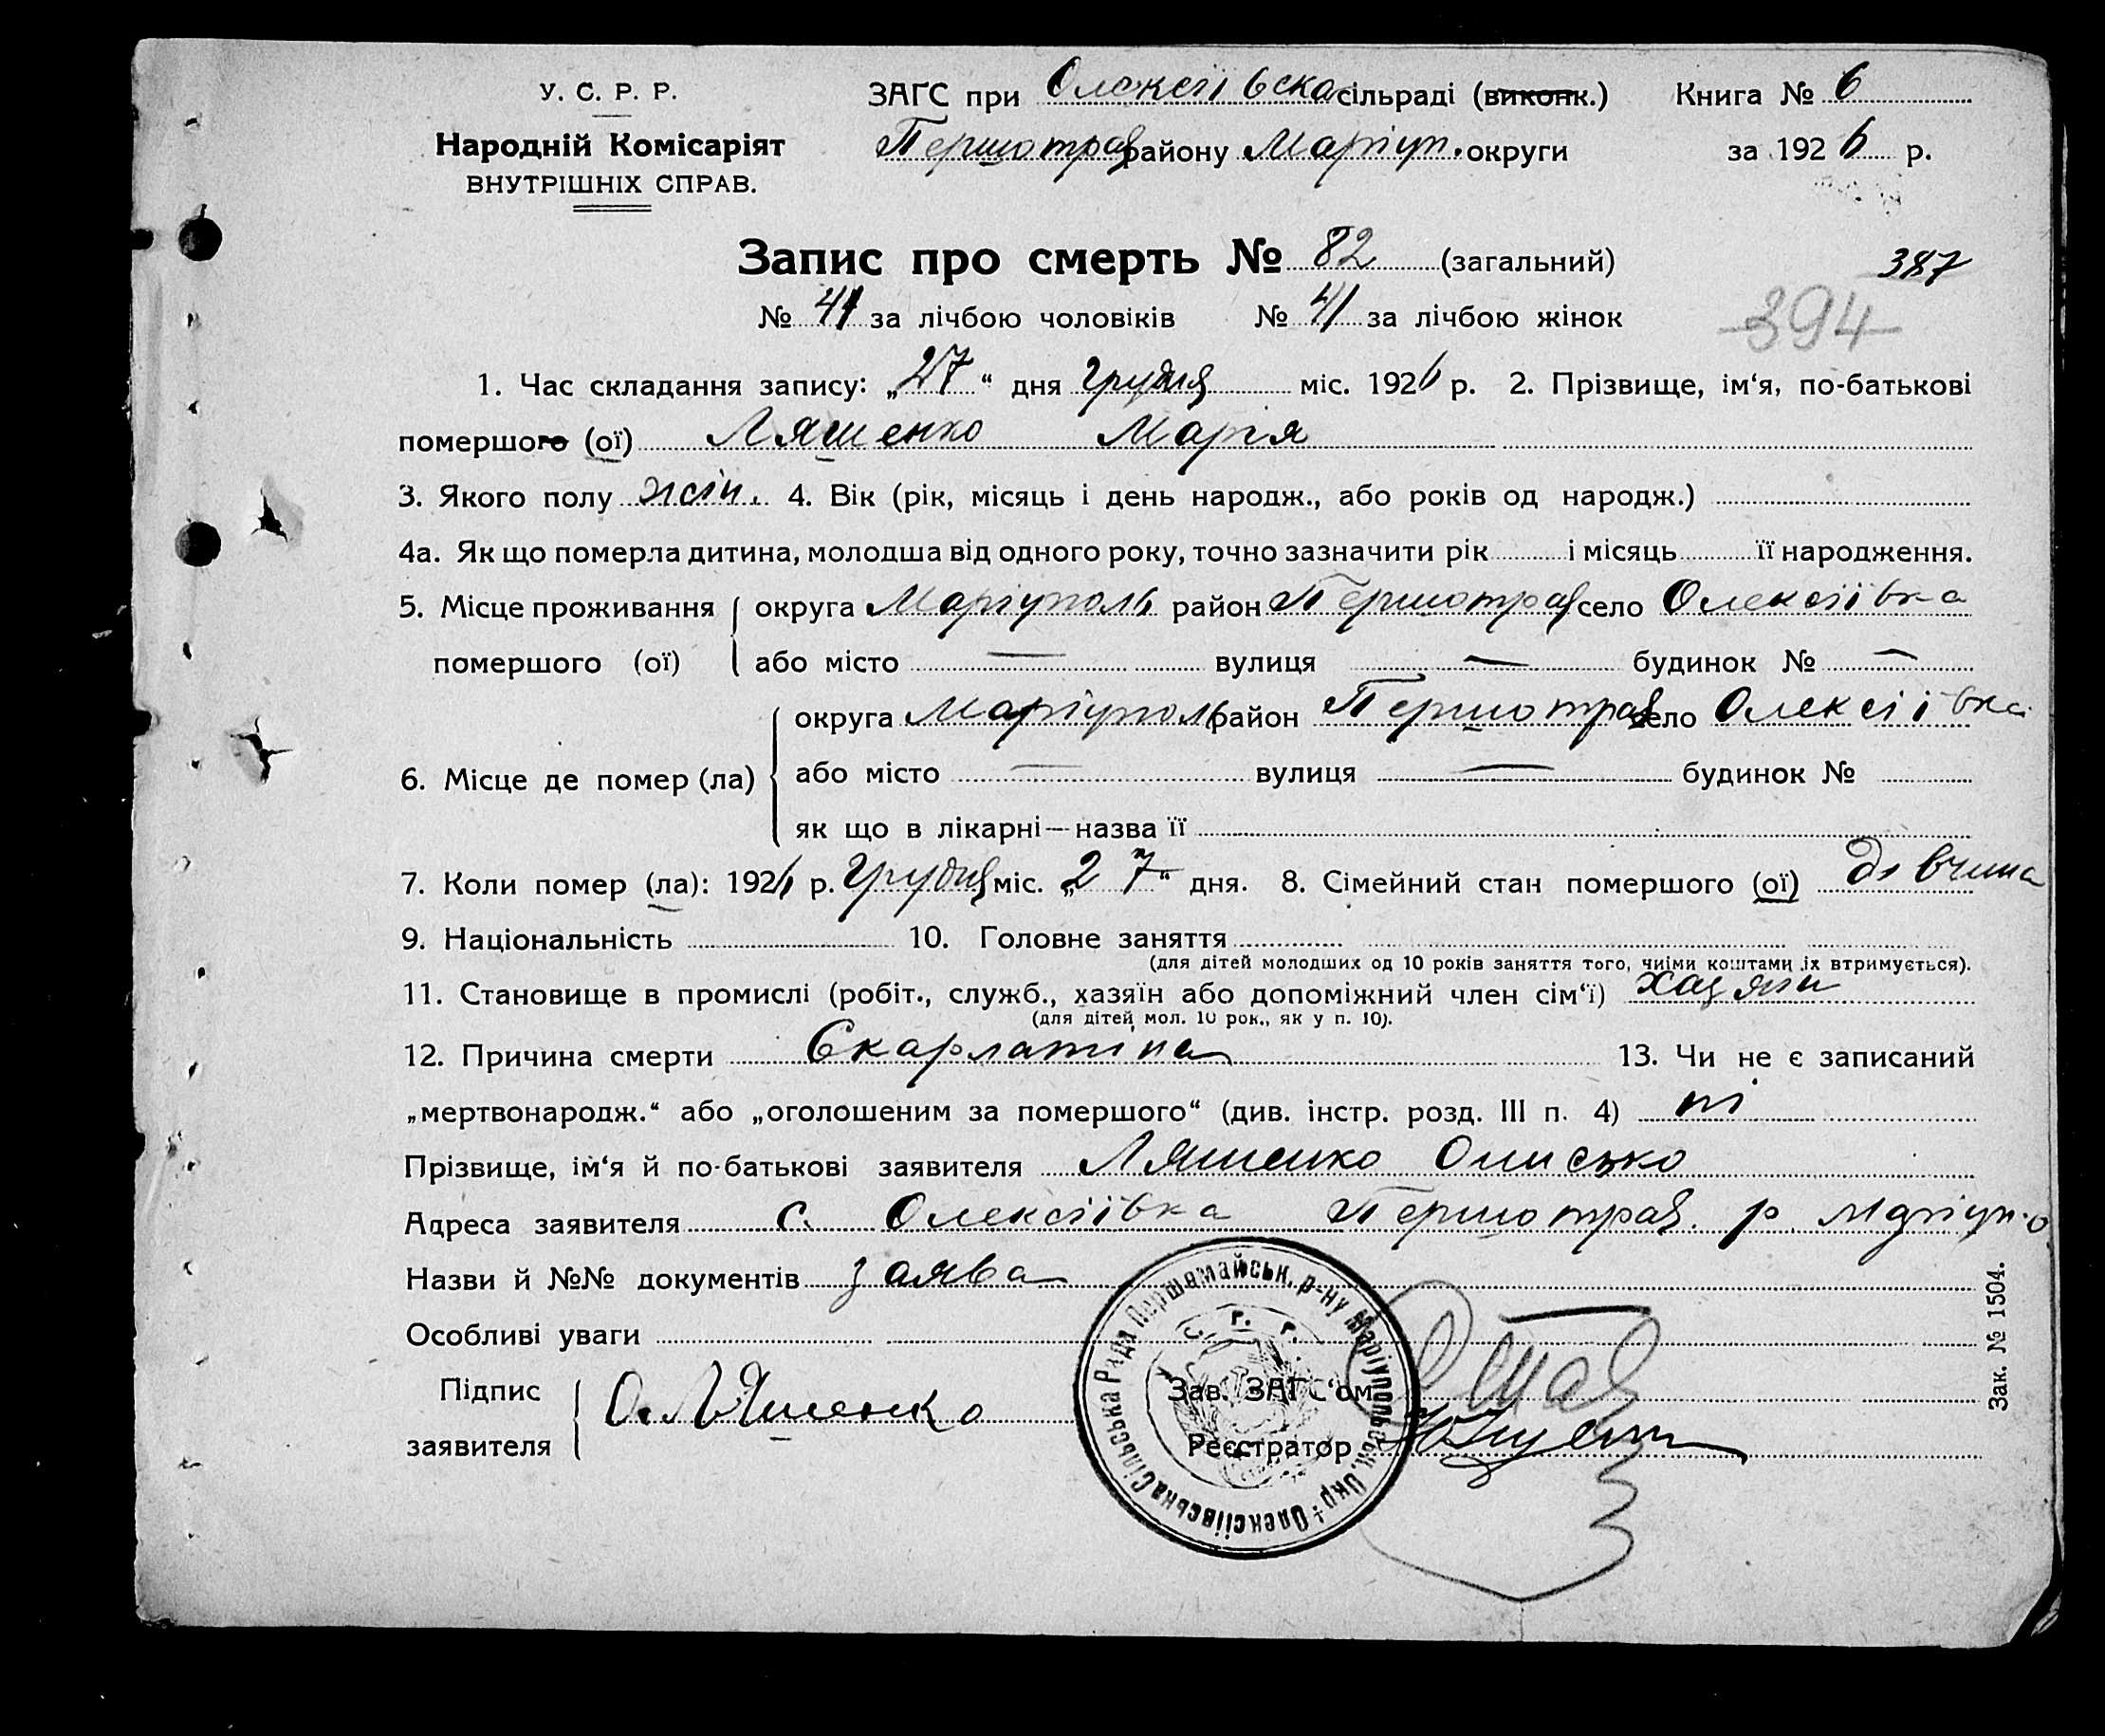 У. С. Р. Р.
Народній Комісаріят
ВНУТРІШНІХ СПРАВ.
ЗАГС при Олексіївска сільраді (виконк.) Книга № 6
Першотрав району Маріуп. округи за 1926 р.
Запис про смерть № 82 (загальний)
387
№ 41 за лічбою чоловіків № 41 за лічбою жінок
394
1. Час складання запису: „27“ дня грудня міс. 1926 р. 2. Прізвище, ім‘я, по-батькові
помершого (ої) Ляшенко Марія
3. Якого полу жін. 4. Вік (рік, місяць і день народж., або років од народж.)
4а. Як що померла дитина, молодша від одного року, точно зазначити рік і місяць її народження.
5. Місце проживання помершого (ої) округа Маріуполь район Першотрав село Олексіївка
або місто — вулиця — будинок № —
6. Місце де помер (ла) округа Маріуполь район Першотрав село Олексіївка
або місто — вулиця — будинок №
як що в лікарні—назва її
7. Коли помер (ла): 1926 р. грудня міс. „27“ дня. 8. Сімейний стан помершого (ої) дівчина
9. Національність 10. Головне заняття
(для дітей молодших од 10 років заняття того, чиїми коштами їх втримується).
11. Становище в промислі (робіт., служб., хазяїн або допоміжний член сім‘ї) хазяїн
(для дітей мол. 10 рок., як у п. 10).
12. Причина смерти Скарлатина 13. Чи не є записаний
„мертвонародж.“ або „оголошеним за помершого“ (див. інстр. розд. III п. 4) ні
Прізвище, ім‘я й по-батькові заявителя Ляшенко Онисько
Адреса заявителя с. Олексіївка Першотрав. р. Маріуп. о
Назви й №№ документів заява
Особливі уваги
Підпис заявителя О. Ляшенко
Зав. ЗАГС‘ом
Реєстратор
Олексіївська Сільська Рада Першамайськ. р-ну Маріупольськ. Окр.
Зак. № 1504.